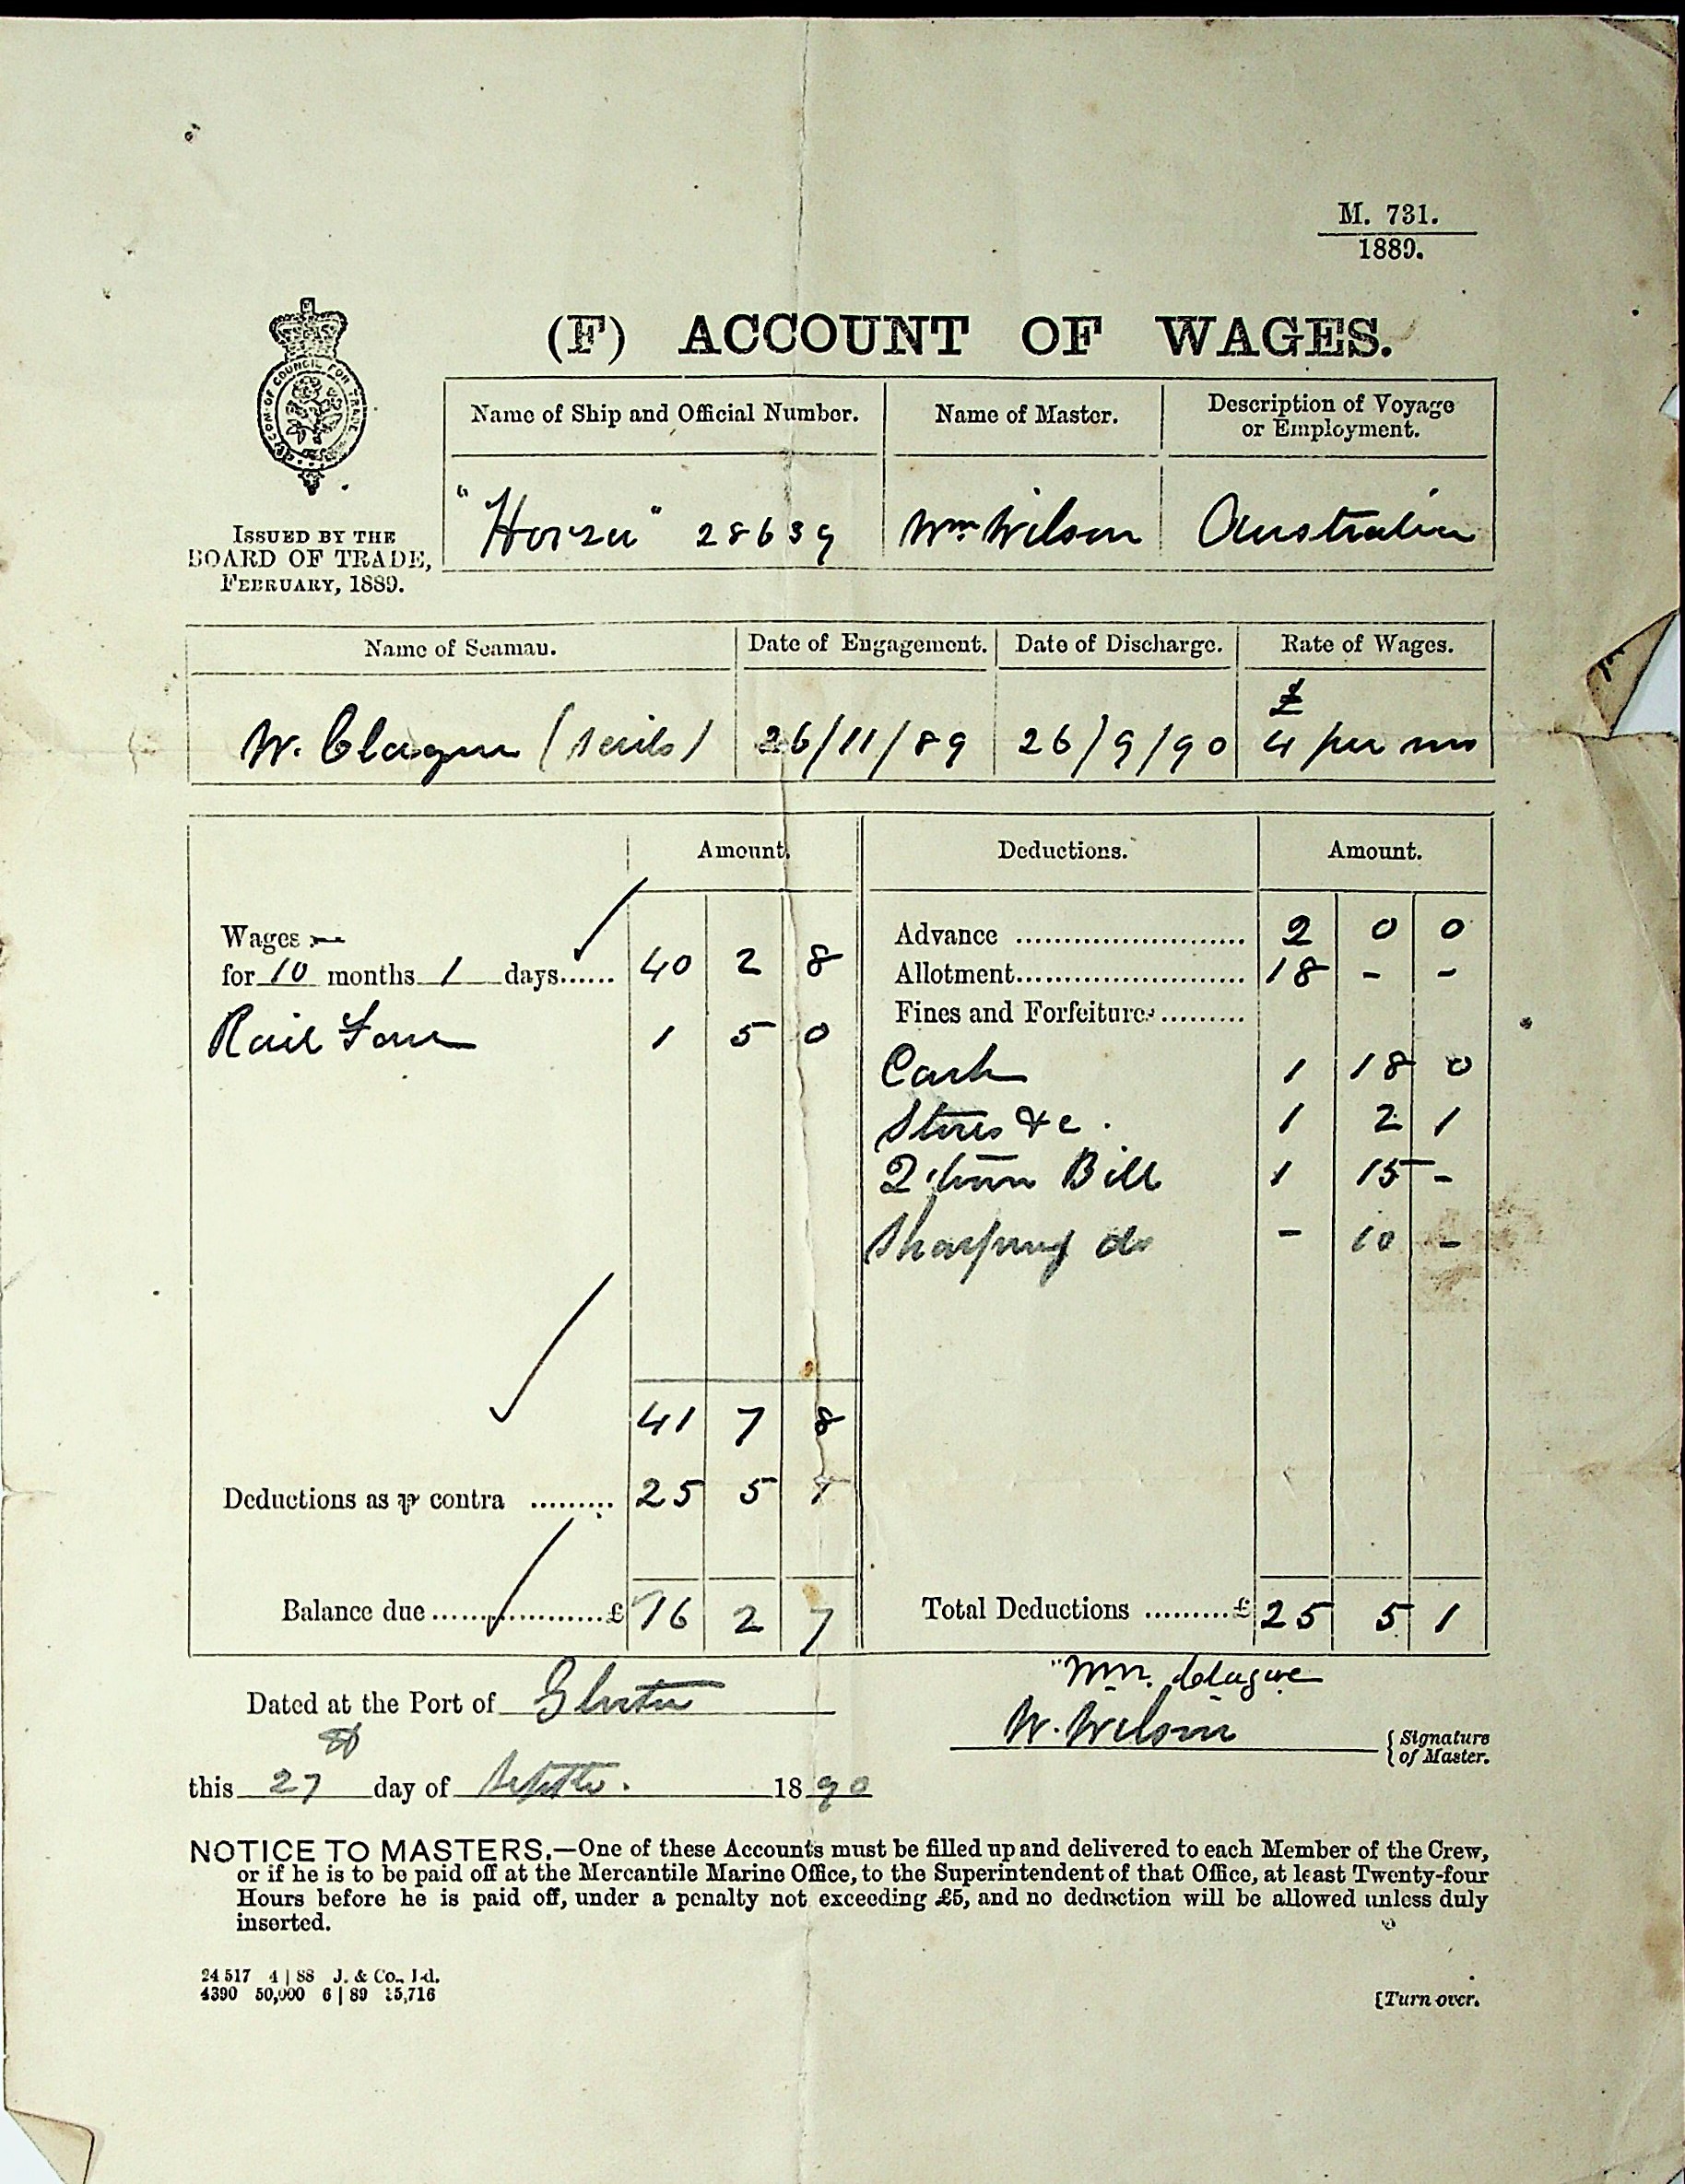 M. 731.
1889.
(F) ACCOUNT OF WAGES.
COM OF COUNCIL FOR TRADE
ISSUED BY THE
BOARD OF TRADE,
FEBRUARY, 1889.
Name of Ship and Official Number. Name of Master. Description of Voyage or Employment.
"Horsa" 28639 Wm Wilson Australia
Name of Seaman. Date of Engagement. Date of Discharge. Rate of Wages.
W. Clague (Sails) 26/11/89 26/9/90 £ 4 per mo
Amount. Deductions. Amount.
Wages
for 10 months 1 days...... 40 2 8
Rail Fare 1 5 0
41 7 8
Deductions as pr contra ......... 25 5 1
Balance due .....................£ 16 2 7
Advance ......................... 2 0 0
Allotment......................... 18 - -
Fines and Forfeitures .........
Cash 1 18 0
Stores &c. 1 2 1
Bill 1 15 -
do - 10 -
Total Deductions ..........£ 25 5 1
Wm. Clague
Dated at the Port of
W. Wilson {Signature of Master.
this 27 day of Septbr. 1890
NOTICE TO MASTERS.—One of these Accounts must be filled up and delivered to each Member of the Crew,
or if he is to be paid off at the Mercantile Marine Office, to the Superintendent of that Office, at least Twenty-four
Hours before he is paid off, under a penalty not exceeding £5, and no deduction will be allowed unless duly
inserted.
24 517 4 | 88 J. & Co., Ld.
4390 50,000 6 | 89 15,716
[Turn over.